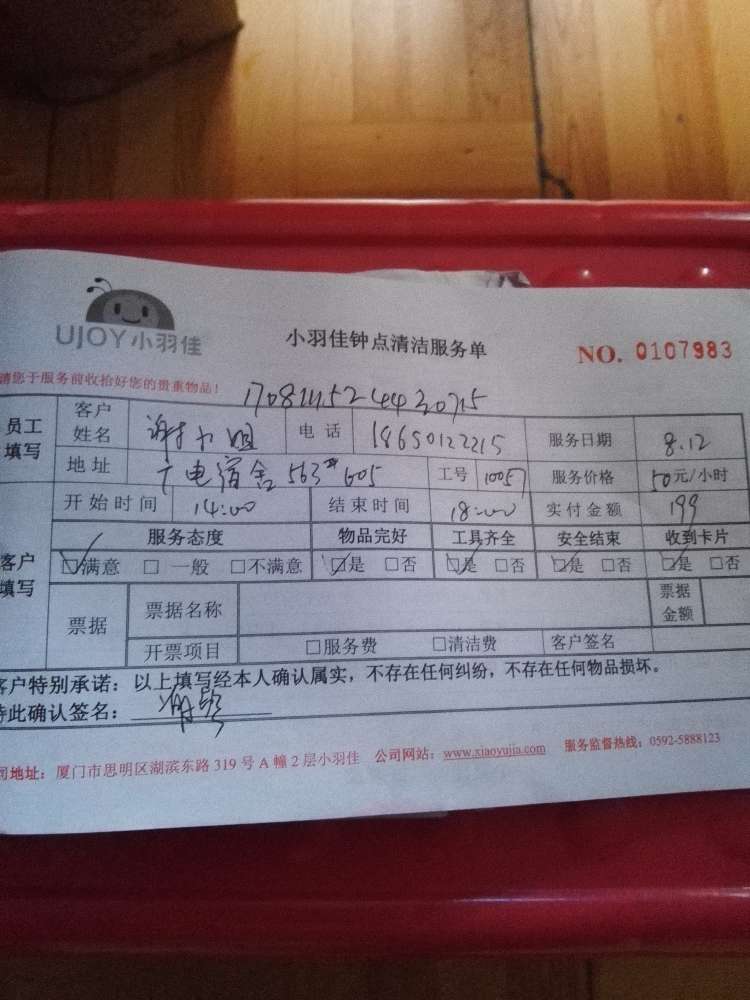 UJOY小羽佳
小羽佳钟点清洁服务单
NO. 0107983
请您于服务前收拾好您的贵重物品！
员工填写 客户姓名 谢小姐 电话 18650122215 服务日期 8.12
地址 电宿舍563#605 工号 1005 服务价格 50元/小时
开始时间 14:00 结束时间 18:00 实付金额 199
客户填写 服务态度 物品完好 工具齐全 安全结束 收到卡片
☑满意 □一般 □不满意 ☑是 □否 ☑是 □否 ☑是 □否 ☑是 □否
票据 票据名称 票据金额
开票项目 □服务费 □清洁费 客户签名
客户特别承诺：以上填写经本人确认属实，不存在任何纠纷，不存在任何物品损坏。
特此确认签名：
地址：厦门市思明区湖滨东路319号A幢2层小羽佳 公司网站：www.xiaoyujia.com 服务监督热线：0592-5888123